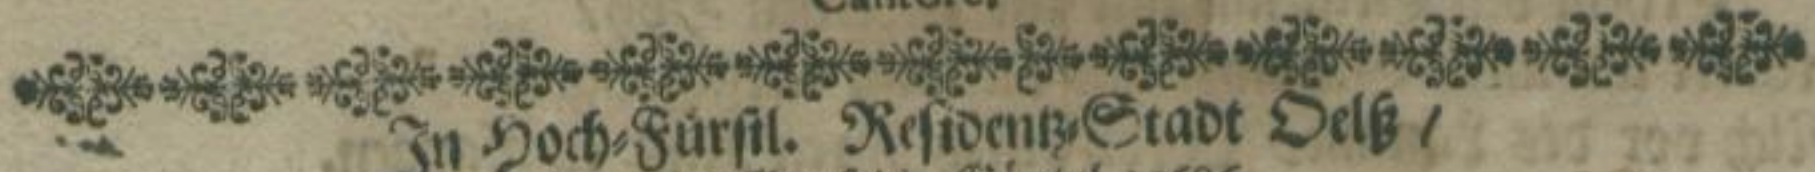 In Hoch-Fürstl. Residentz-Stadt Oelß /